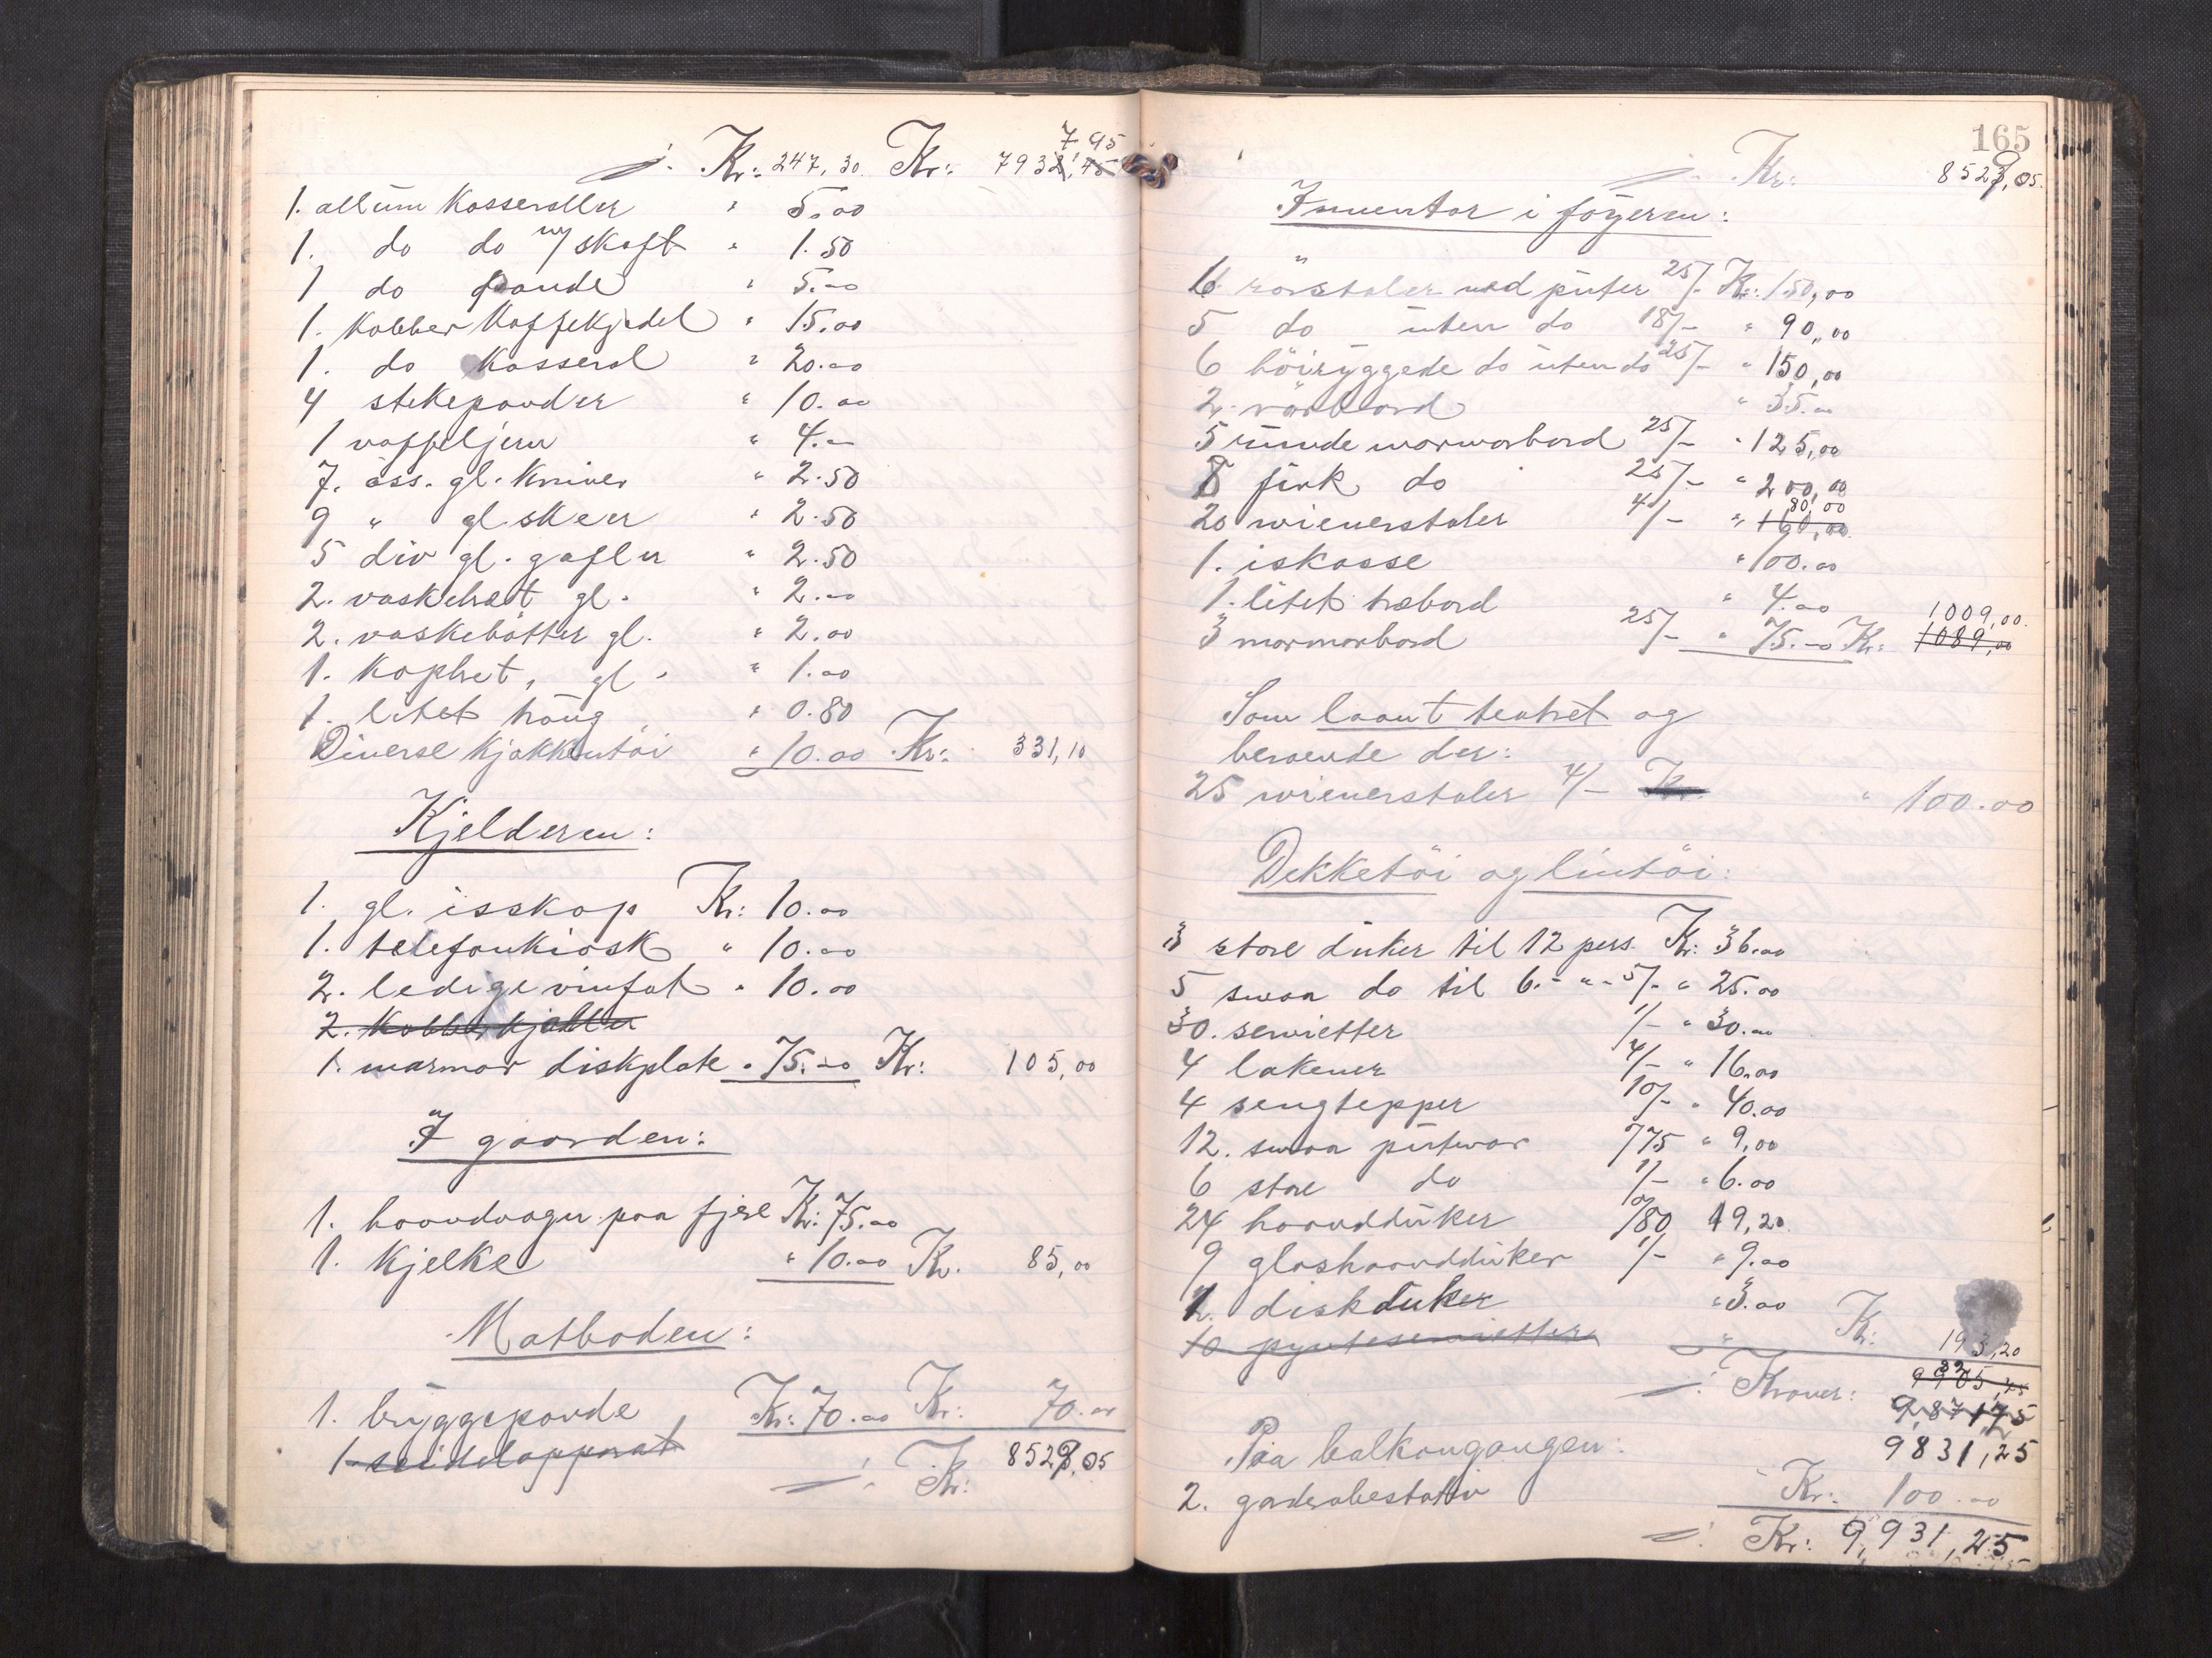 7 95
Kr: 247,30. Kr: 7932,45
1. allum Kasseroller " 5.00
1. do do m/skaft " 1.50
1 do pande " 5.00
1. Kobber Kaffekjedel " 15.00
1. do Kasserol " 20.00
4 stekepander " 10.00
1 vaffeljern " 4.00
7. ass. gl. Kniver " 2.50
9 " gl skeer " 2.50
5 div gl. gafler " 2.50
2. vaskebræt gl. " 2.00
2. vaskebøtter gl. " 2.00
1. Kopbret, gl. " 1.00
1. litet traug " 0.80
Diverse Kjøkkentøi " 10.00 Kr: 331,10
Kjelderen:
1. gl. isskap Kr: 10.00
1. telefonkiosk " 10.00
2. ledige vinfat " 10.00
2. Kobberkjedler
1. marmor diskplate " 75.00 Kr: 105,00
I gaarden:
1. haandvogn paa fjere Kr: 75.00
1. Kjelke " 10.00 Kr. 85,00
Matboden:
1. bryggepande Kr: 70.00 Kr: 70.00
1 seidelapparat
Kr: 8528,05
165
Kr: 8528,05.
Inventar i foyeren:
6 rørstoler med puter 25/- Kr: 150,00
5 do uten do 18/- " 90,00
6 höiryggede do uten do 25/- " 150,00
2. rörbord " 35.00
5 runde marmorbord 25/- " 125,00
8 firk do 25/- " 200,00
80,00
20 wienerstoler 4/- " 160,00.
1. iskasse " 100.00
1. litet træbord " 4.00 1,009,00.
3 marmorbord 25/- " 75.00 Kr: 1089,00
Som laant teatret og
beroende der:
25 wienerstoler 4/- Kr. " 100.00
Dekketöi og lintöi:
3 store duker til 12 pers. Kr: 36.00
5 smaa do til 6.- " - 5/- " 25.00
30. servietter 1/- " 30.00
4 lakener 4/- " 16.00
4 sengtepper 10/- " 40.00
12. smaa putevar /75 " 9,00
6 store do 1/- " 6.00
24 haandduker /80 19,20.
9 glashaandduker 1/- " 9.00
2. diskduker " 3.00
10 pynteservietter " Kr: 193,20
Kroner: 9905,45
9,871,75
9831,25
Paa balkongangen:
2. garderobestativ Kr: 100.00
Kr: 9,931,25